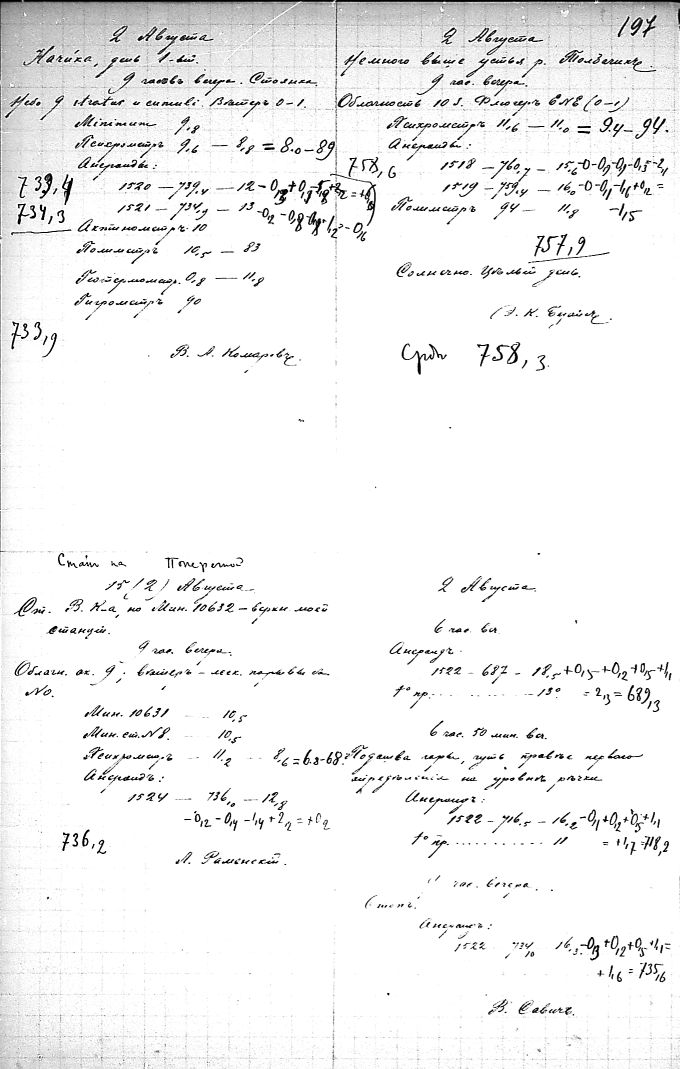 197
2 Августа
Начика, день 1-ый.
9 часовъ вечера. Стоянка
Небо 9 stratus и cumuli. Вѣтеръ 0-1.
Minimum 9,8
Психрометръ 9,6 — 8,8 = 8,0 — 89
Анероиды:
739,4 1520 — 739,4 — 12
734,3 1521 — 734,9 — 13
Актинометръ 10
Полиметръ 10,5 — 83
Геотермометр. 0,8 — 11,8
Гигрометръ 90
733,9
В. А. Комаровъ.
2 Августа
Немного выше устья р.
9 час. вечера.
Облачность 10 S. Флюгеръ ENE (0-1)
Психрометръ 11,6 — 11,0 = 9,4 — 94.
Анероиды:
758,6 1518 — 760,7 — 15,6
1519 — 759,4 — 16,0
Полиметръ 94 — 11,8 -1,5
757,9
Солнечно. Цѣлый день.
758,3
15 (2) Августа
Ст. В. К-а, по Мин. 10632 — верхн. мост
9 час. вечера.
Облачн. ок. 9; вѣтеръ — легк. порывы съ
NO.
Мин. 10631 10,5
Мин. ст. N8. 10,5
Психрометръ — 11,2 8,6 = 6.8-68
Анероидъ:
1524 — 736,0 — 12,8
-0,2 -0,4 -1,4 +2,2 = +0,2
736,2
Л. Раменскій.
2 Августа.
6 час. веч.
Анероидъ
1522 — 687 — 18,5 +0,5 +0,2 +0,5 +1,1
t° пр. 13° = 2,3 = 689,3
6 час. 50 мин. веч.
Подошва горы, чуть правѣе перваго
опредѣленія на уровнѣ рѣчки
Анероидъ:
1522 — 716,5 — 16,2 -0,1 +0,2 +0,5 +1,1
t° пр. 11 = +1,7 = 718,2
час. вечера.
Степь.
Анероидъ:
1522 734,0 16,3 -0,3 +0,2 +0,5 +1,1 =
+1,6 = 735,6
В. Савичъ.